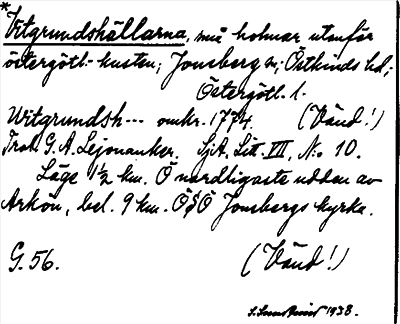 *
Vitgrundshällarna, små holmar utanför
östergötl. kusten; Jonsbergs sn; Östkinds hd;
Östergötl. l.
Witgrundsh--- omkr. 1774. (Vänd!)
Trol. G. A. Lejonanker. SjA. Lit. VII, No 10.
Läge 1½ km. Ö nordligaste udden av
Arkön, bel. 9 km. ÖSÖ Jonsbergs kyrka.
G. 56. (Vänd!)
1938.